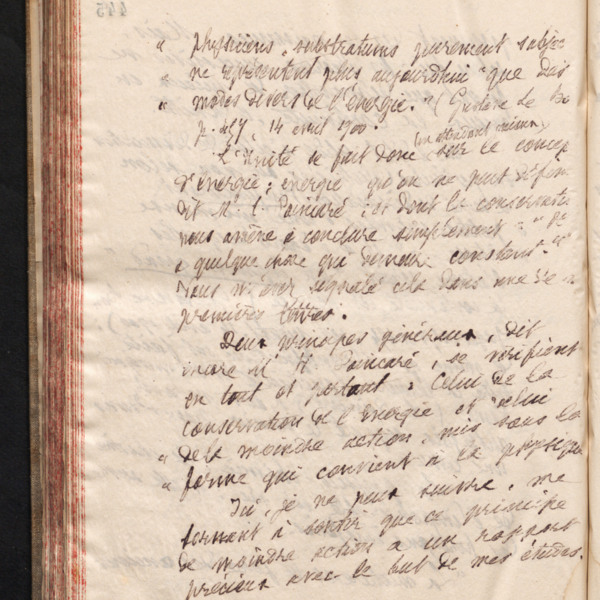 " physiciens, substratums purement subjec-
" ne représentent plus aujourdhui "que des
" modes divers de l'énergie." (Gustave Le Bo
p. 257, 14 avril 1900.
(en attendant mieux)
L'Unité se fait donc sur le concep
d'énergie; énergie qu'on ne peut défin
dit Mr. Poincaré; et dont la conservatio
nous amène à conclure simplement:
a quelque chose qui demeure constant."
Vous m'avez signalé cela dans une de
premières lettres.
Deux principes généraux, dit
encore Mr H. Poincaré, se vérifient
en tout et partout: Celui de la
conservation de l'Énergie et "celui
" de la moindre action, mis sous la
" forme qui convient à la physique
Ici, je ne peux suivre, me
bornant à sentir que ce principe
de moindre action a un rapport
précieux avec le but de mes études.